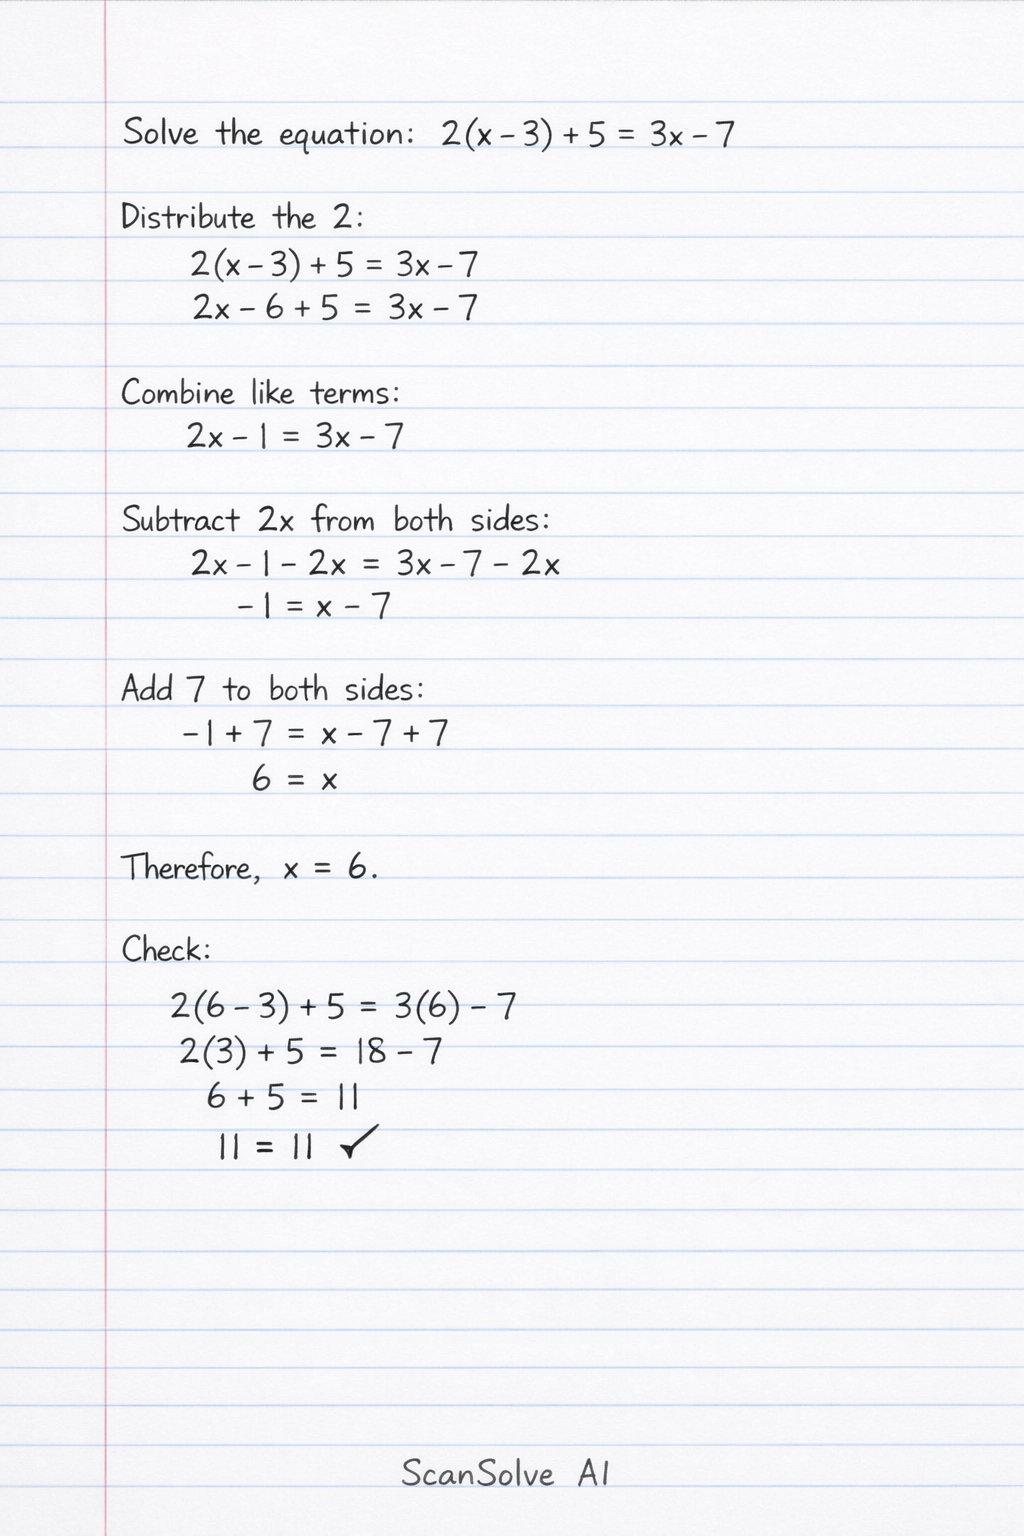 Solve the equation: 2(x - 3) + 5 = 3x - 7
Distribute the 2:
2(x - 3) + 5 = 3x - 7
2x - 6 + 5 = 3x - 7
Combine like terms:
2x - 1 = 3x - 7
Subtract 2x from both sides:
2x - 1 - 2x = 3x - 7 - 2x
-1 = x - 7
Add 7 to both sides:
-1 + 7 = x - 7 + 7
6 = x
Therefore, x = 6.
Check:
2(6 - 3) + 5 = 3(6) - 7
2(3) + 5 = 18 - 7
6 + 5 = 11
11 = 11 ✓
ScanSolve AI